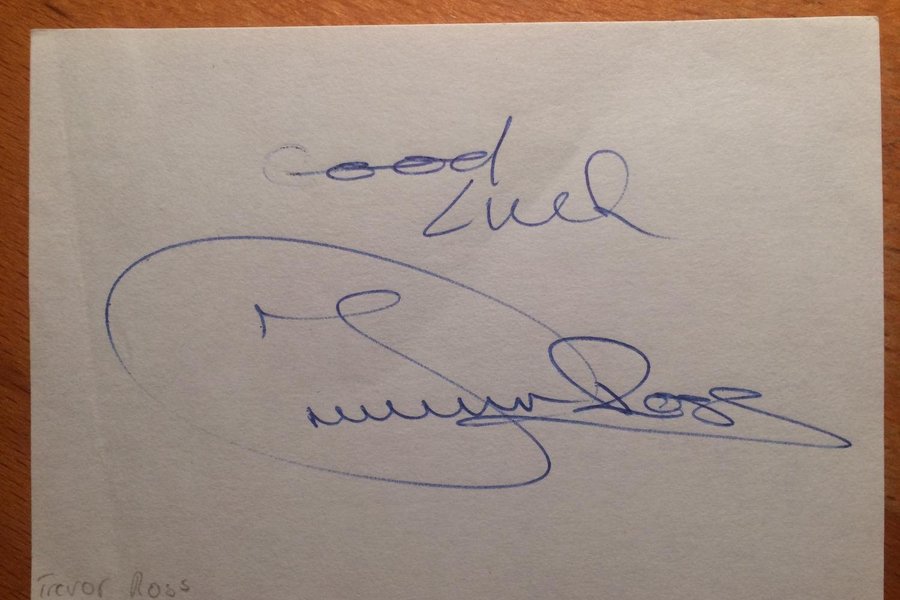 Good
Luck
Trevor Ross
Trevor Ross